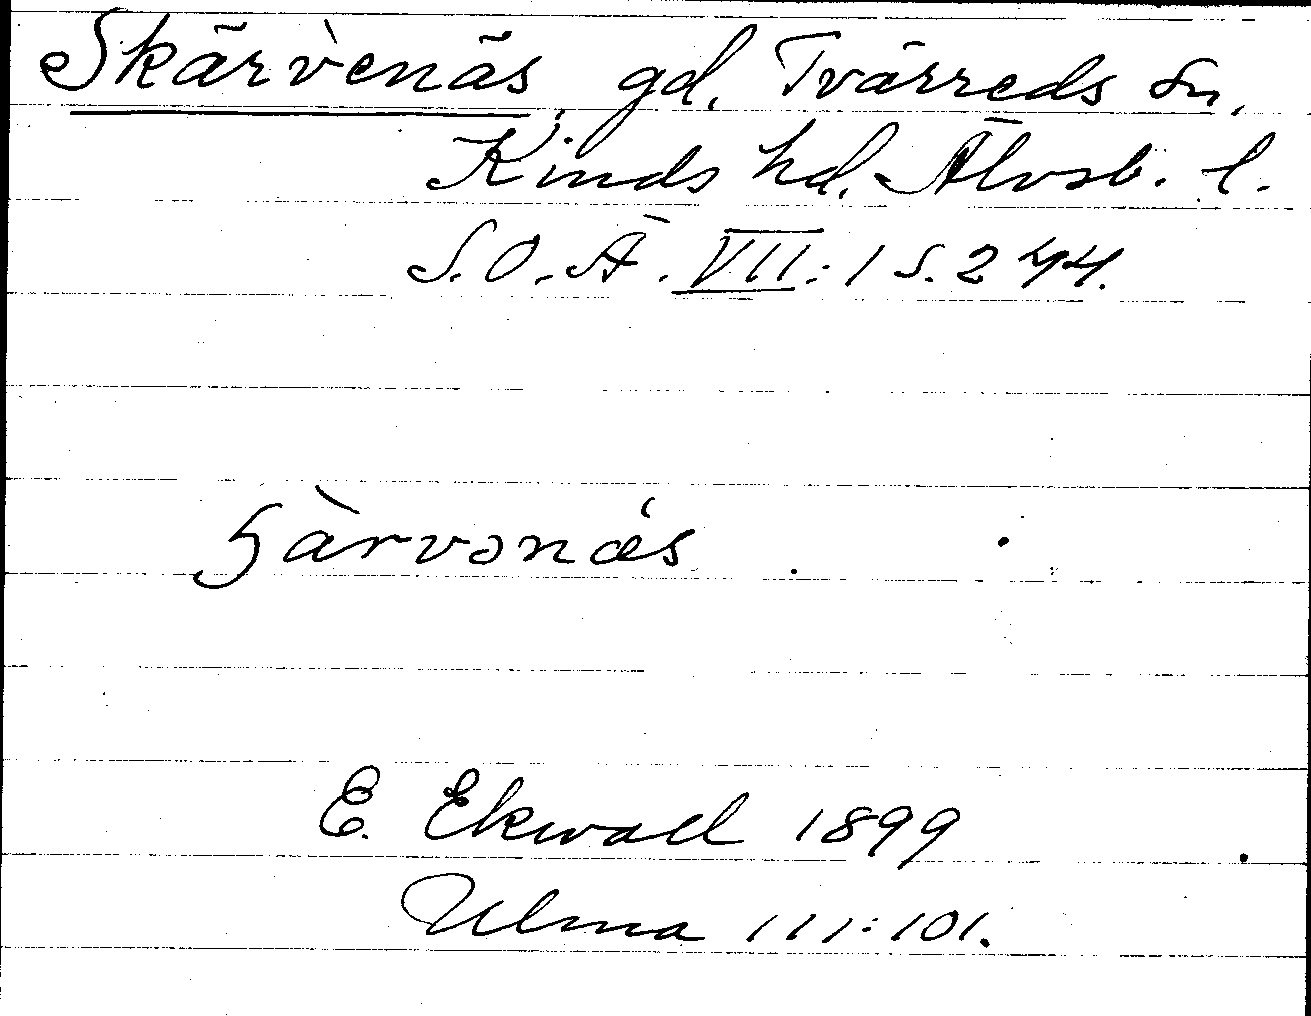 Skärvenäs, gd, Tvärreds sn,
Kinds hd. Älvsb. l.
S.O.Ä. VII:1 s. 244.
ʃàrvənás
E. Ekwall 1899
Ulma 111:101.